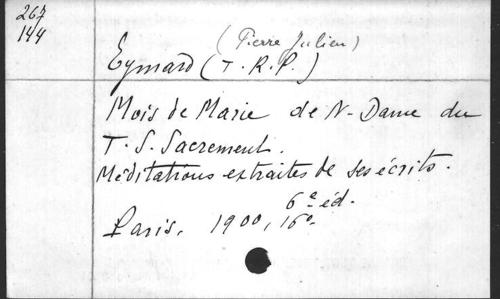 267
144
(Pierre Julien)
Eymard (T. R. P.)
Mois de Marie de N-Dame du
T. S. Sacrement.
Méditations extraites de ses écrits.
6e éd.
Paris, 1900, 16o.